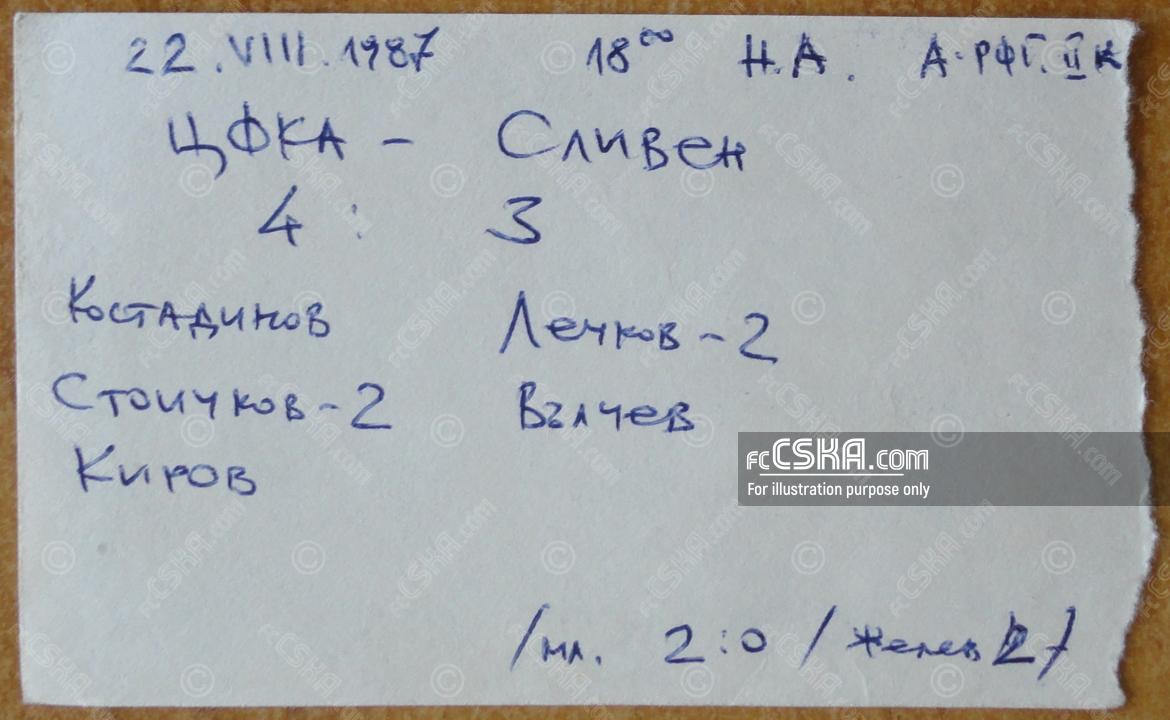 22.VIII.1987 18⁰⁰ Н.А. А-РФГ. II к
ЦФКА - Сливен
4 : 3
Костадинов Лечков - 2
Стоичков - 2 Вълчев
Киров
fcCSKA.com
For illustration purpose only
/мл. 2:0 / Желев 2/